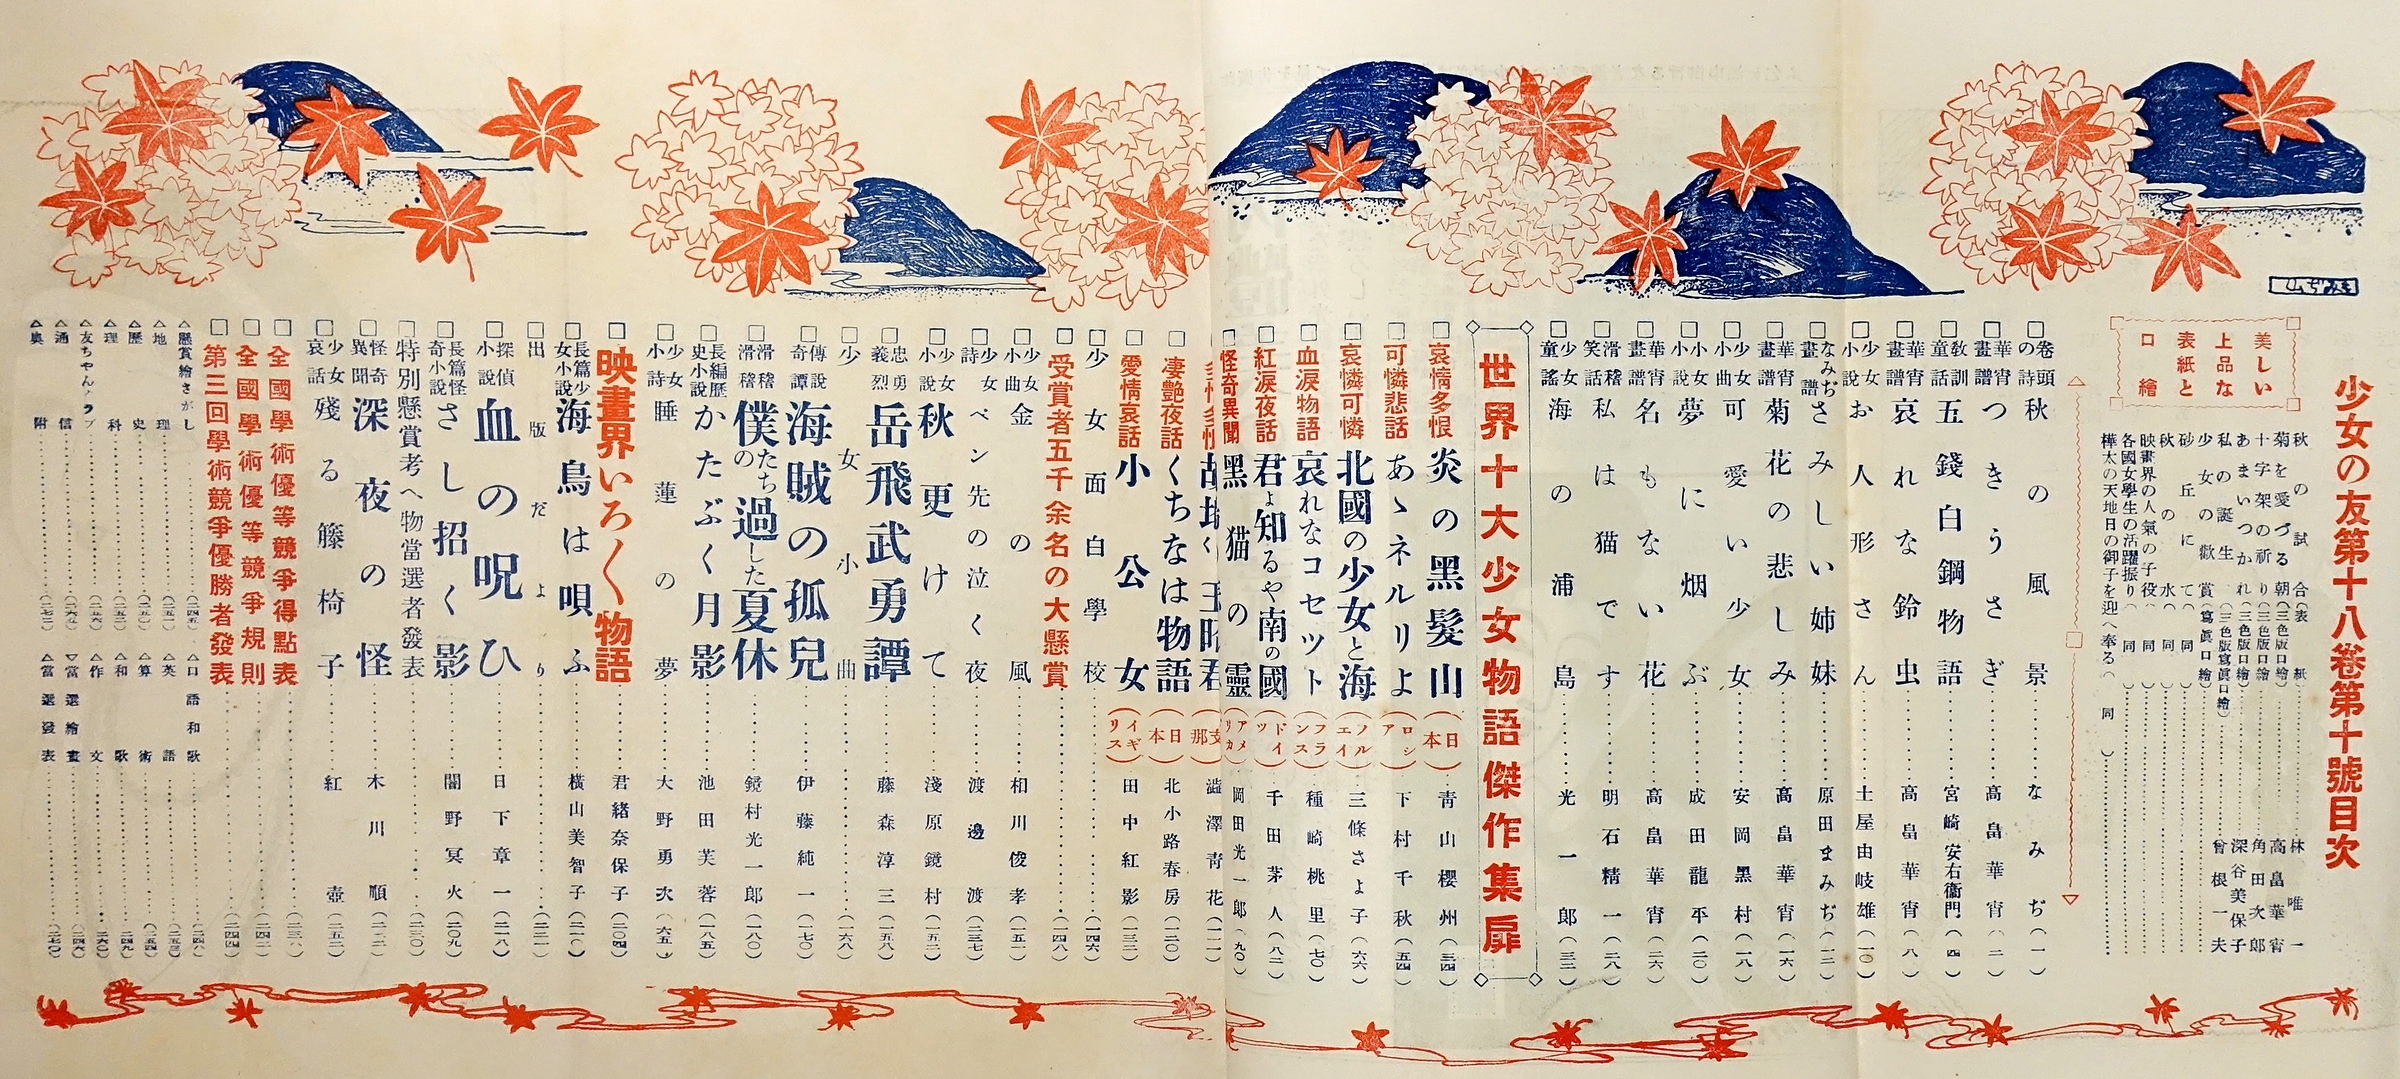 少女の友第十八卷第十號目次
みぢ山
美しい
上品な
表紙と
口繪
秋の試合(表紙)……林唯一
菊を愛づる朝(三色版口繪)……高畠華宵
十字架の祈り(三色版口繪)……角田次郎
あまいつかれ(二色版口繪)……深谷美保子
私の誕生(三色版寫眞口繪)……曾根一夫
少女の歡賞(寫眞口繪)
砂丘にて(同)
秋の水(同)
映畫界の人氣の子役(同)
各國女學生の活躍振り(同)
樺太の天地日の御子を迎へ奉る(同)
卷頭の詩 秋の風景……なみぢ(一)
華宵畫譜 つきうさぎ……高畠華宵(二)
敎訓童話 五錢白銅物語……宮崎安右衞門(四)
華宵畫譜 哀れな鈴虫……高畠華宵(八)
少女小說 お人形さん……土屋由岐雄(一〇)
なみぢ畫譜 さみしい姉妹……原田まみぢ(一二)
華宵畫譜 菊花の悲しみ……高畠華宵(一六)
少女小曲 可愛い少女……安岡黑村(一八)
少女小說 夢に烟ぶ……成田龍平(二〇)
華宵畫譜 名もない花……高畠華宵(二六)
滑稽笑話 私は猫です……明石精一(二八)
少女童謠 海の浦島……光一郎(三三)
世界十大少女物語傑作集扉
哀情多恨 炎の黑髮山(日本)……靑山櫻州(三四)
可憐悲話 あゝネルリよ(ロシア)……下村千秋(五四)
哀憐可憐 北國の少女と海(ノルエイ)……三條さよ子(六六)
血淚物語 哀れなコセツト(フランス)……種崎桃里(七〇)
紅淚夜話 君よ知るや南の國(ドイツ)……千田茅人(八二)
怪奇異聞 黑猫の靈(アメリカ)……岡田光一郎(九〇)
故城く王昭君(支那)……澁澤靑花
凄艷夜話 くちなは物語(日本)……北小路春房(一二〇)
愛情哀話 小公女(イギリス)……田中紅影(一三二)
少女面白學校……(一四六)
受賞者五千余名の大懸賞……(一四八)
少女小曲 金の風……相川俊孝(一五一)
少女詩 ペン先の泣く夜……渡邊渡(二三七)
少女小說 秋更けて……淺原鏡村(一五二)
忠勇義烈 岳飛武勇譚……藤森淳三(一五八)
少女小曲……(一六八)
傳說奇譚 海賊の孤兒……伊藤純一(一七〇)
滑稽滑稽 僕たちの過した夏休……鏡村光一郎(一八〇)
長編歷史小說 かたぶく月影……池田芙蓉(一八五)
少女小詩 睡蓮の夢……大野勇次(六五)
映畫界いろ〱物語……君緖奈保子(二〇四)
長篇少女小說 海鳥は唄ふ……橫山美智子(二一〇)
出版だより……(二二一)
探偵小說 血の呪ひ……日下章一(二一八)
長篇怪奇小說 さし招く影……闇野冥火(二〇九)
特別懸賞考へ物當選者發表……(二三〇)
怪奇異聞 深夜の怪……木川順
少女哀話 殘る籐椅子……紅壺(二五二)
全國學術優等競爭得點表……(二三八)
全國學術優等競爭規則……(二四二)
第三回學術競爭優勝者發表……(二四四)
△懸賞繪さがし……(二四五)
△地理……(二五一)
△歷史
△理科……(二五三)
△友ちやんクラブ……(二五六)
△通信
△奧附……(二七二)
△口語和歌……(二四八)
△英語
△算術
△和歌
△作文
▽當選繪畫
△當選發表……(二七〇)